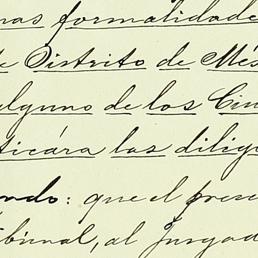 nas formalidade
e Distrito de Més
alguno de los Cin
ticára las dilig
ndo: que el prese
ibunal, al Juzgad